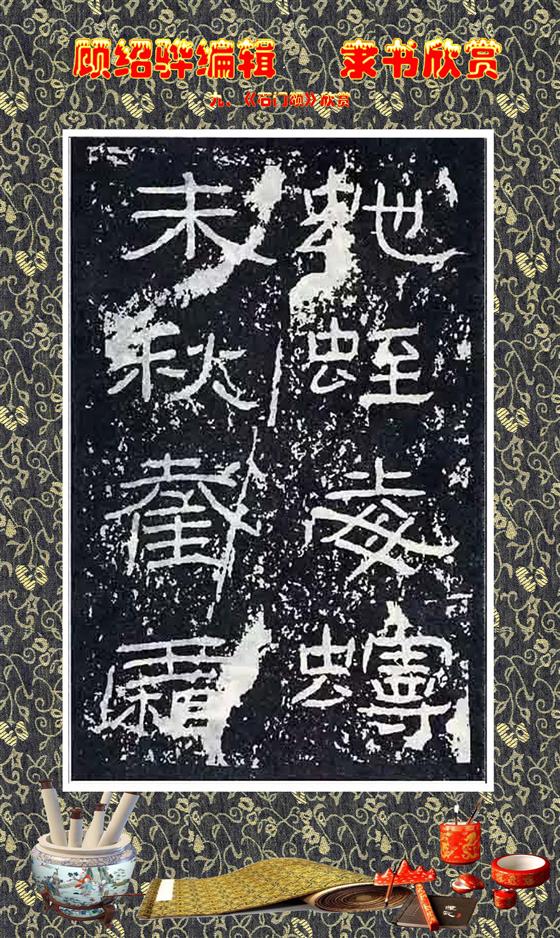 顾绍骅编辑 隶书欣赏
九、《石门颂》欣赏
虵蛭毒蟃
未秋截霜